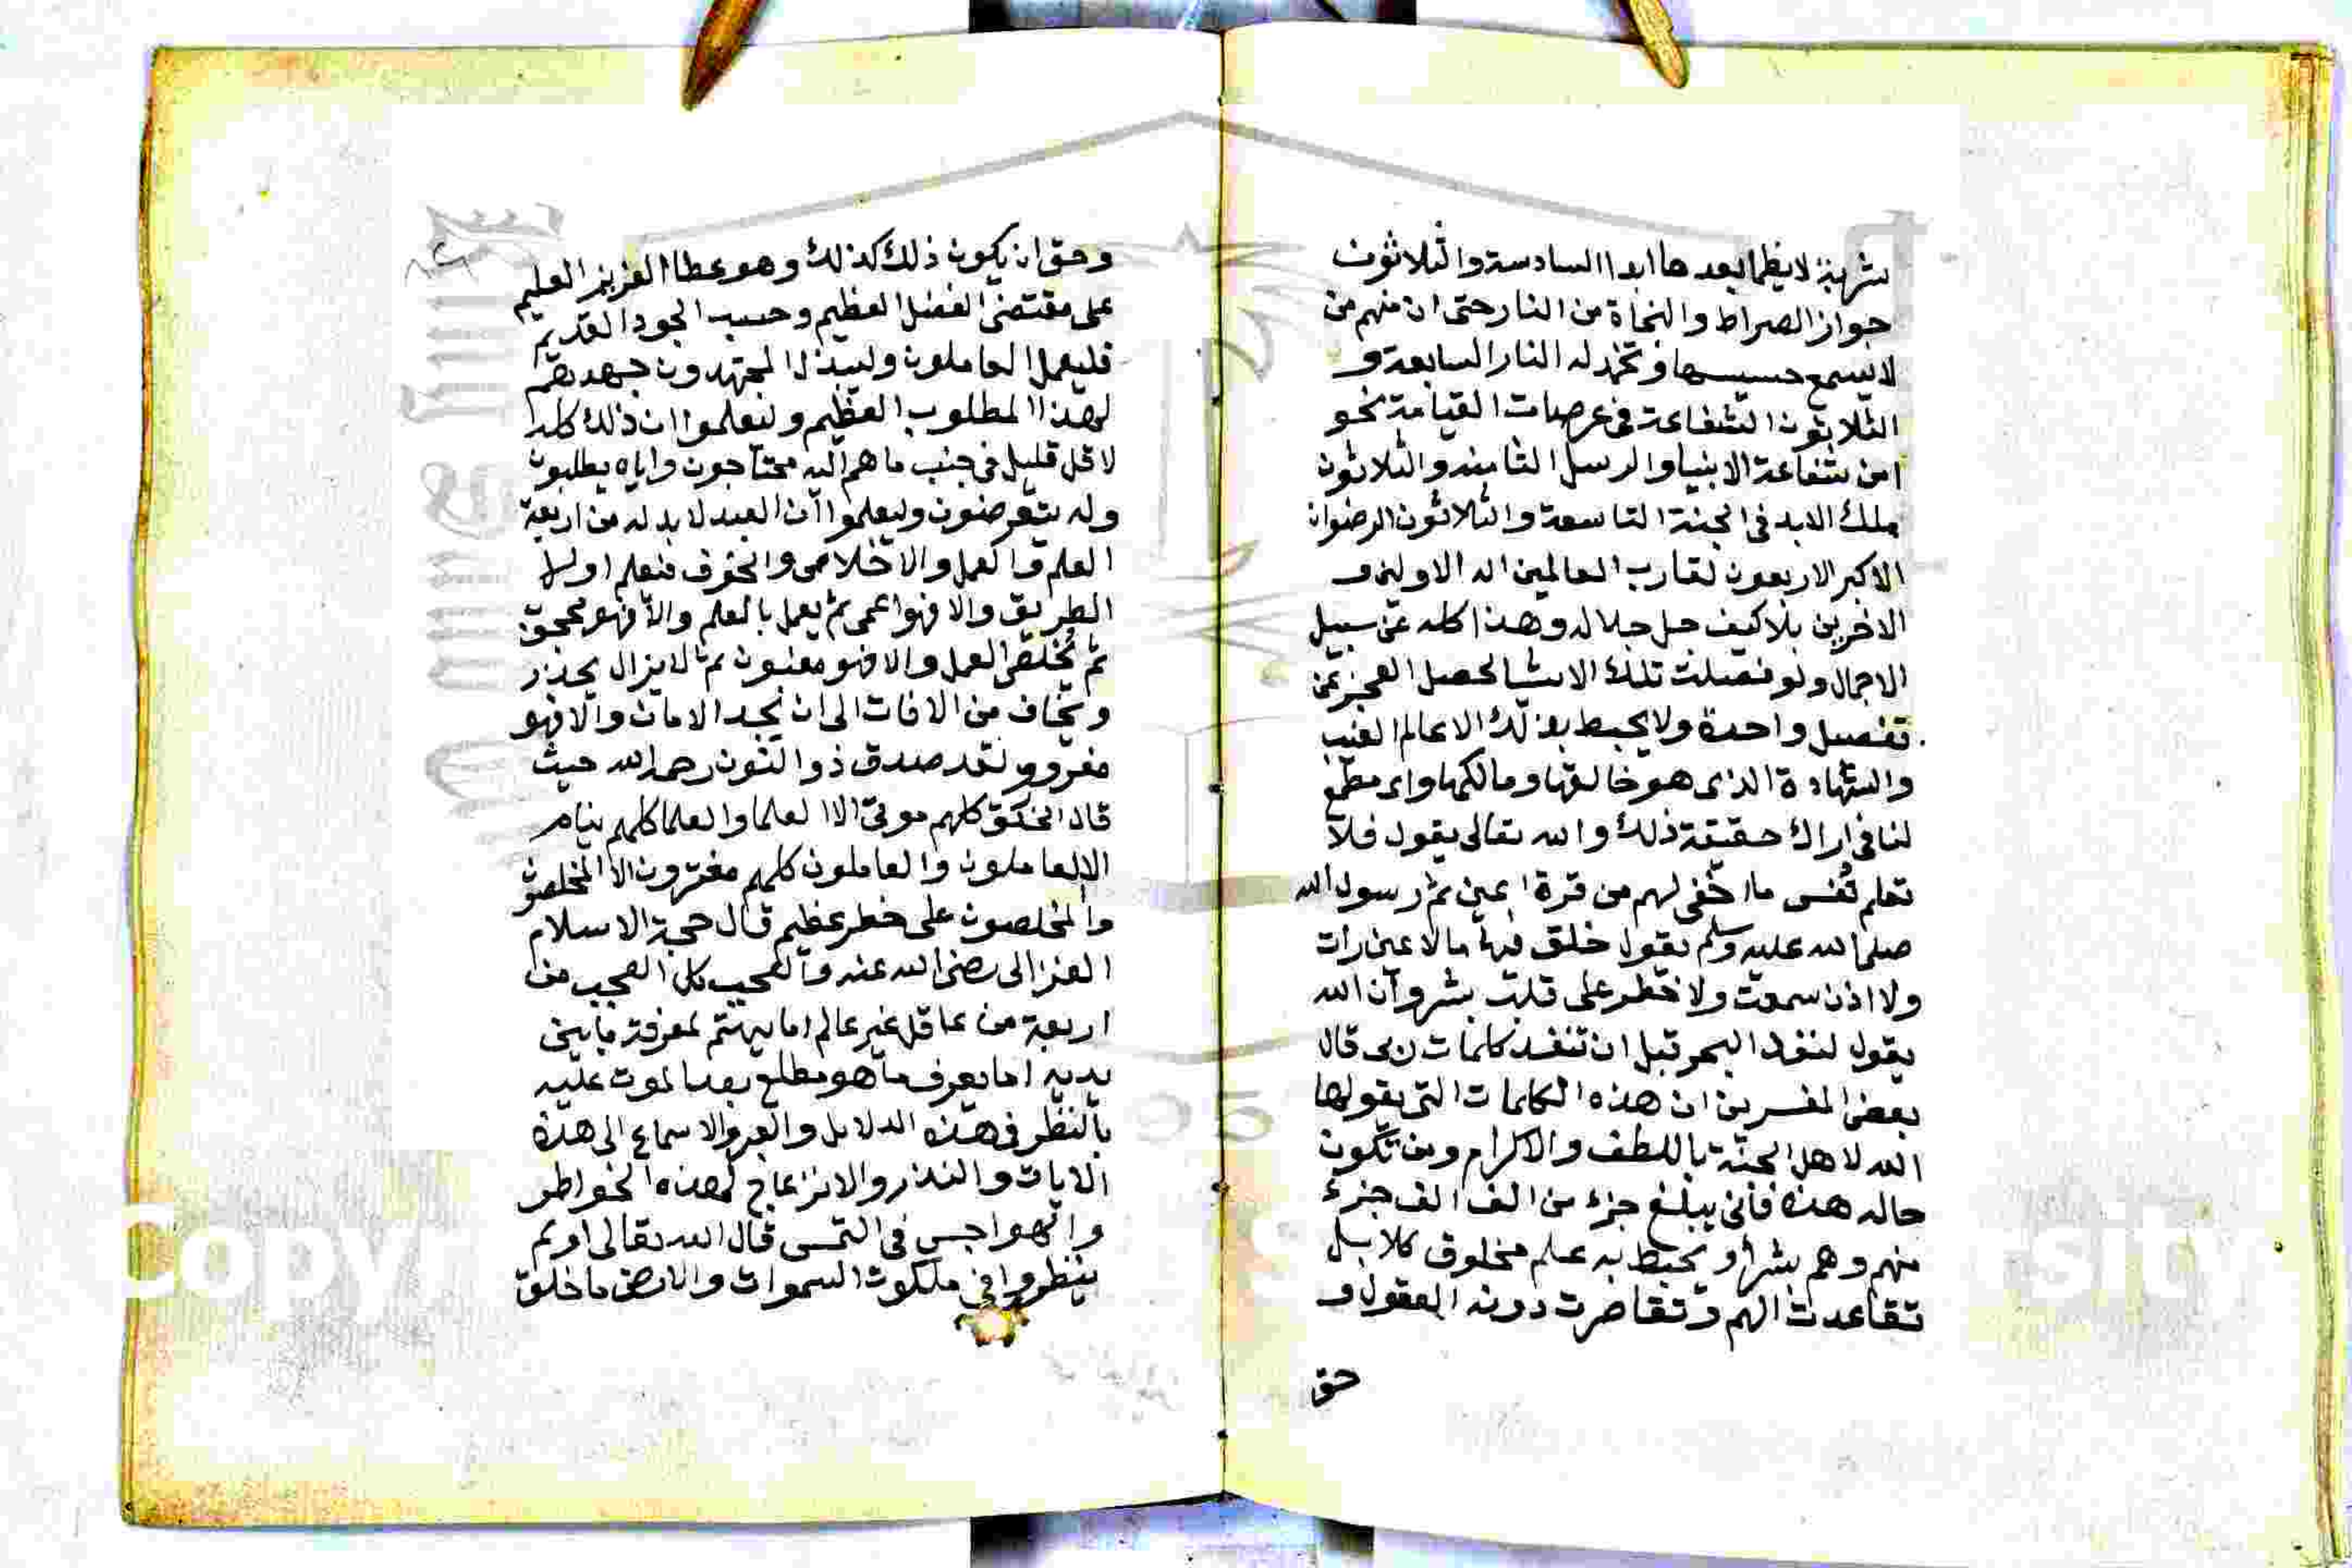 شربة لا يظما بعدها ابدا السادسة والثلاثون
جواز الصراط والنجاة من النار حتى ان منهم من
لا يسمع حسيسها وتخمد له النار السابعة و
الثلاثون الشفاعة في عرصات القيامة نحو
امن شفاعة الانبيا والرسل الثامنة والثلاثون
ملك الابد في الجنة التاسعة والثلاثون الرضوان
الاكبر الاربعون لقا رب العالمين اله الاولين و
الاخرين بلا كيف جل جلاله وهذا كله عن سبيل
الاجمال ولو فصلت تلك الاشيا لحصل العجز عن
تفصيل واحدة ولا يحيط بذلك الا عالم الغيب
والشهادة الذي هو خالقها ومالكها واي مطمع
لنا في اراك حقيقة ذلك والله تعالى يقول فلا
تعلم نفس ما اخفي لهم من قرة اعين ثم رسول الله
صلى الله عليه وسلم يقول خلق فيها ما لا عين رات
ولا اذن سمعت ولا خطر على قلب بشر وان الله
يقول لنفد البحر قبل ان تنفد كلمات ربي قال
بعض المفسرين ان هذه الكلمات التي يقولها
الله لاهل الجنة باللطف والاكرام ومن تكون
حاله هذه فاني يبلغ جزء من الف الف جزء
منهم وهم بشر او يحيط به علم مخلوق كلا بل
تقاعدت الهم وتقاصرت دونه العقول و
حق
وحق ان يكون ذلك كذلك وهو عطا العزيز العليم
على مقتضى الفضل العظيم وحسب الجود القديم
فليعمل العاملون وليبذل المجتهدون جهدهم
لهذا المطلوب العظيم ولنعلموا ان ذلك كله
لاقل قليل في جنب ما هم اليه محتاجون واياه يطلبون
وله يتعرضون وليعلموا ان العبد لا بد له من اربعة
العلم والعمل والاخلاص والخوف فنعلم اولا
الطريق والا فهو اعمى ثم يعمل بالعلم والا فهو محجوب
ثم يخلص العمل والا فهو مغبون ثم لا يزال يحذر
ويخاف من الافات الى ان يجد الامان والا فهو
مغرور ولقد صدق ذو النون رحمه الله حيث
قال الخلق كلهم موتى الا العلما والعلما كلهم نيام
الا العاملون والعاملون كلهم مغترون الا المخلصون
والمخلصون على خطر عظيم قال حجة الاسلام
الغزالى رضى الله عنه والعجب كل العجب من
اربعة من عاقل غير عالم اما يهتم لمعرفة ما بين
يديه اما يعرف ما هو مطلع بعد الموت عليه
بالنظر في هذه الدلايل والعبر والاسماع الى هذه
الايات والنذر والانزعاج لهذه الخواطر
والهواجس في النفس قال الله تعالى اولم
ينظروا في ملكوت السموات والارض ما خلق